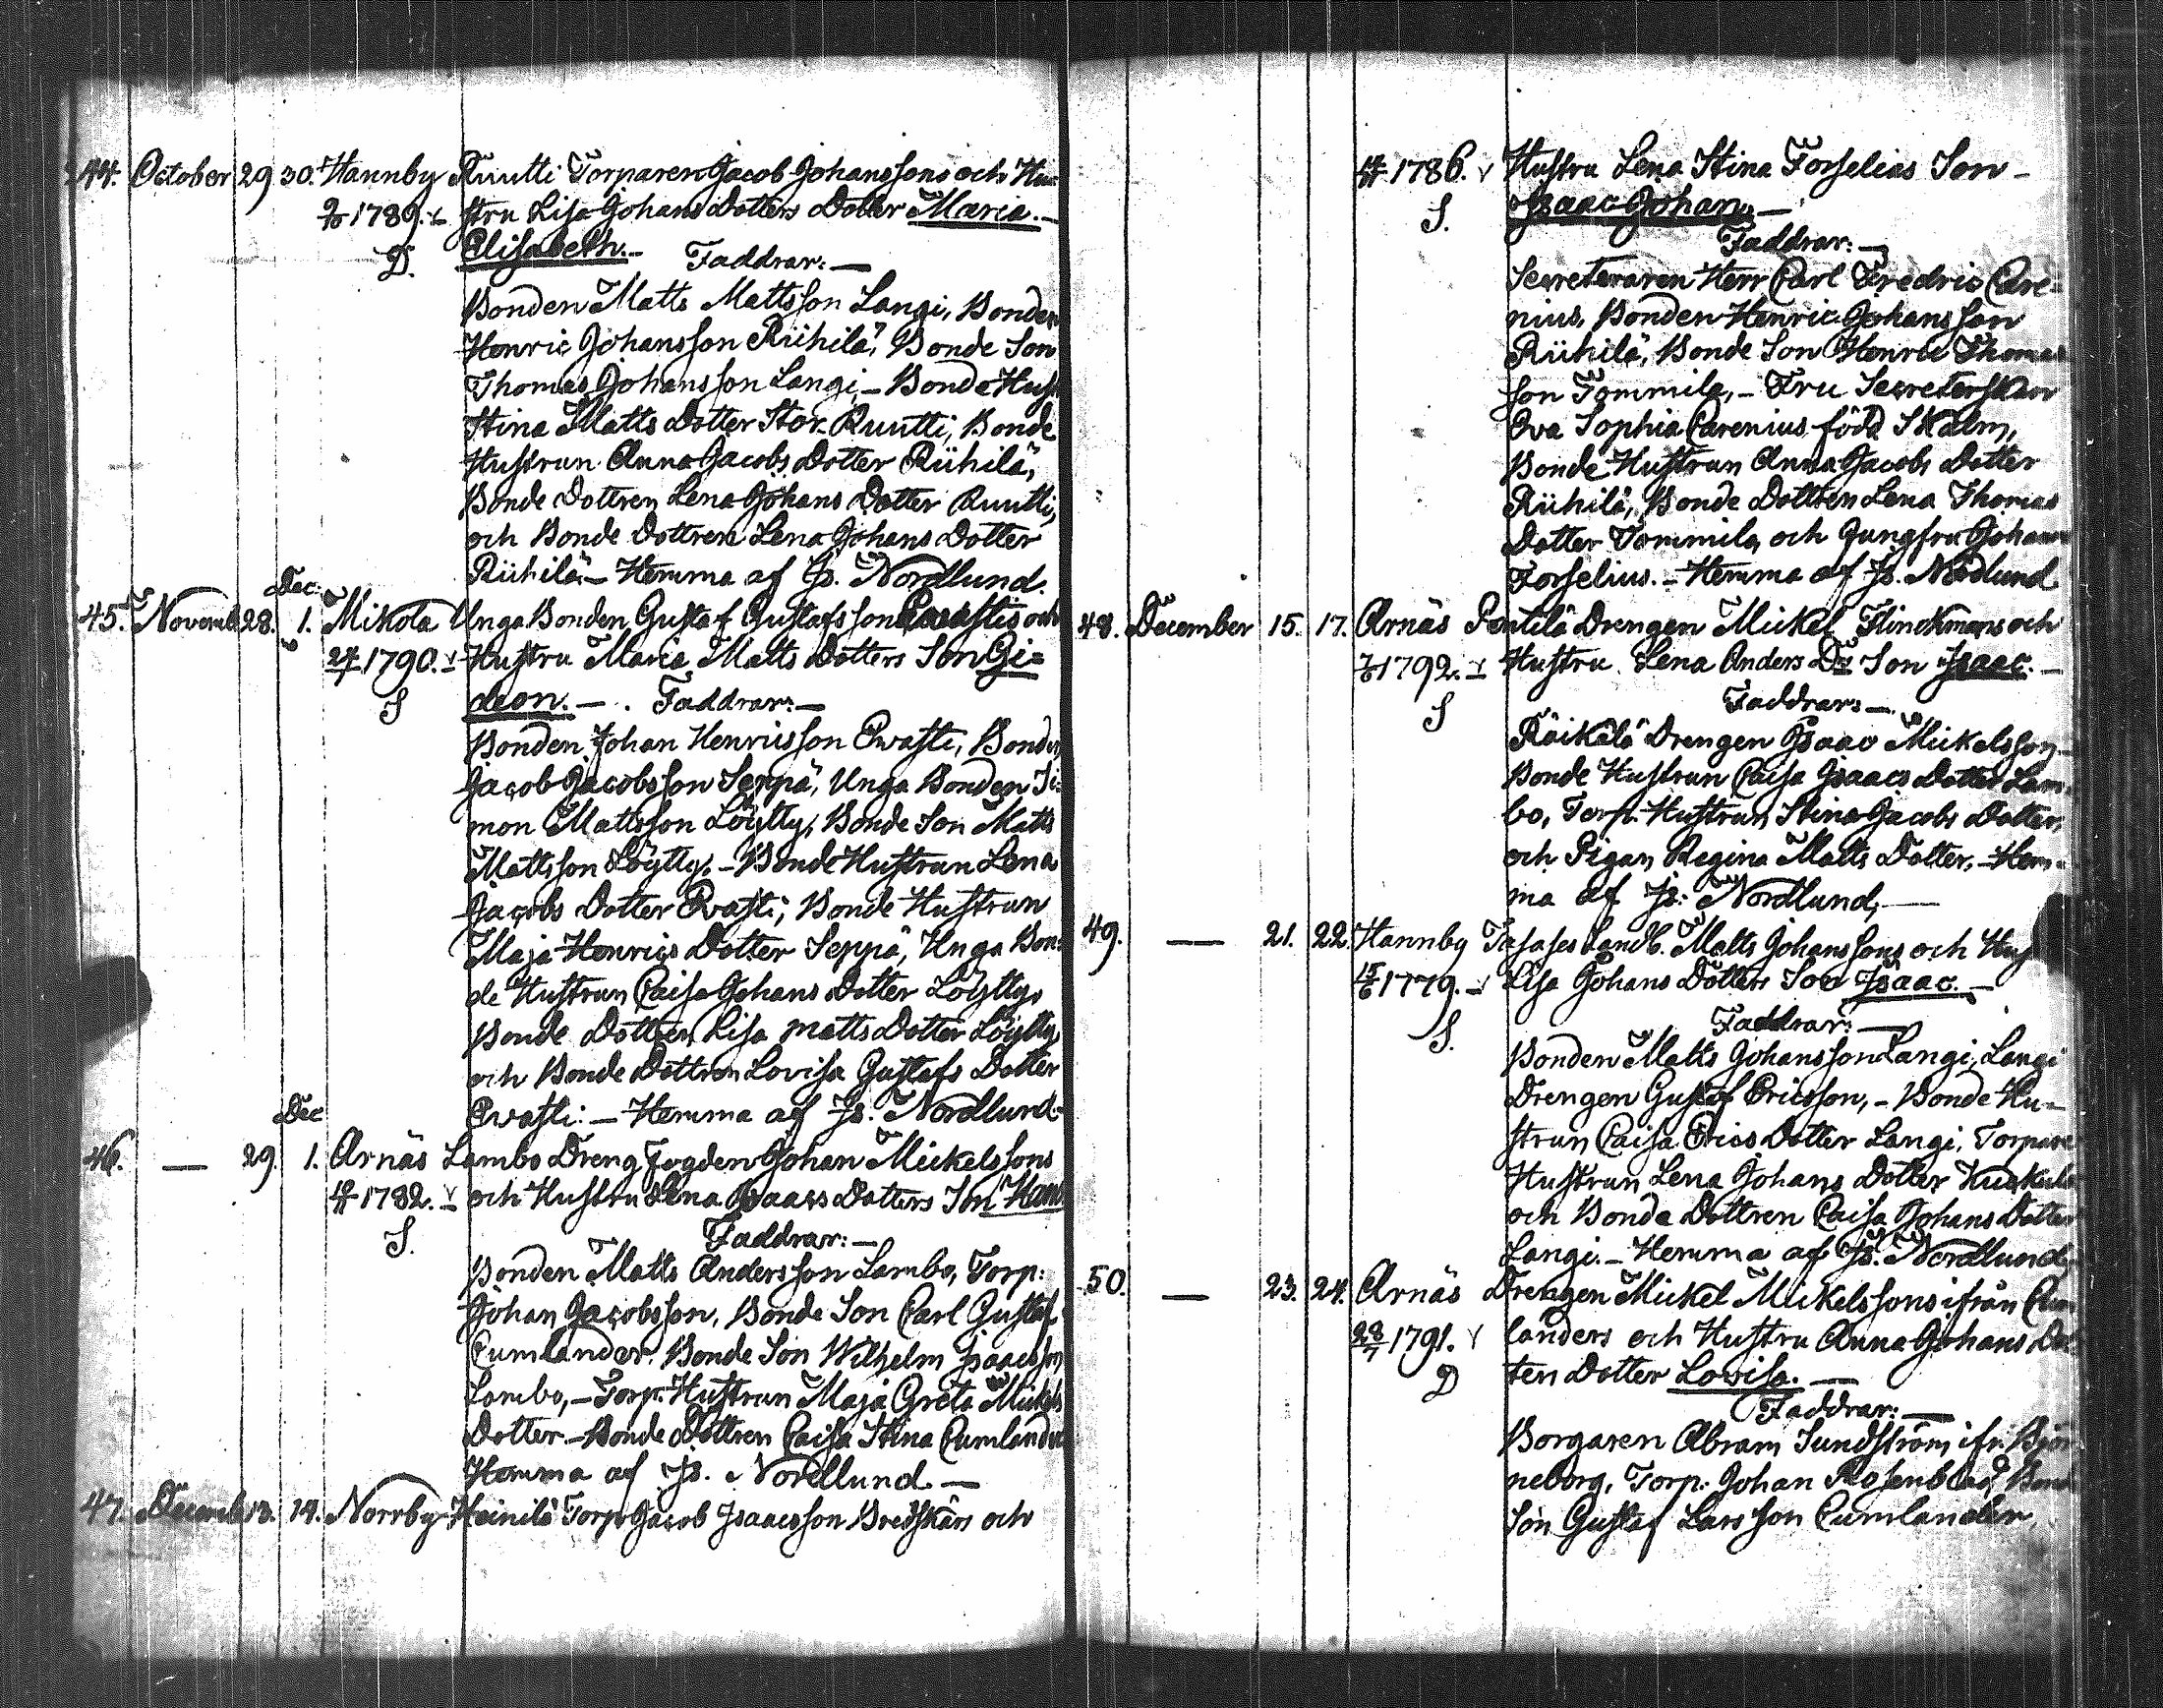 44. October 29 30. Hannby Ruutti Torparen Jacob Johanssons och Hu-
1789. stru Lisa Johans Dotters Dotter Maria
D. Elisabeth. Faddrar:
Bonden Matts Mattsson Langi, Bonden
Henric Johansson Riihilä, Bonde Son
Thomas Johansson Langi, - Bonde Hust
Stina Matts Dotter Stor Ruutti, Bonde
Hustrun Anna Jacobs Dotter Riihilä,
Bonde Dottren Lena Johans Dotter Ruutti,
och Bonde Dottren Lena Johans Dotter
Riihilä - Hemma af Is. Nordlund.
Dec:
45. Novemb 28. 1. Mikola Unga Bonden Gustaf Gustafsson och
1790. Hustru Maria Matts Dotters Son Gi=
S deon. - Faddrar: -
Bonden Johan Henricsson Ewasti, Bonden
Jacob Jacobsson Seppä, Unga Bonden Si-
mon Mattsson Löytty, Bonde Son Matts
Mattsson Löytty. - Bonde Hustrun Lena
Jacobs Dotter Ewasti, Bonde Hustrun
Maja Henrics Dotter Seppä, Unga Bon-
de Hustrun Caisa Johans Dotter Löytty,
Bonde Dottren Lisa Matts Dotter Löytty
och Bonde Dottren Lovisa Gustafs Dotter
Ewasti: - Hemma af Is. Nordlund.
Dec
46. — 29. 1. Arnäs Lambo Dreng Fogden Johan Mickelssons
1782. och Hustru Lena Isaacs Dotters Son
S. Faddrar: -
Bonden Matts Andersson Lambo, Torp:
Johan Jacobsson, Bonde Son Carl Gustaf
Cumlander, Bonde Son Wilhelm Isaacsson
Lambo, - Torp. Hustrun Maja Greta Mickels
Dotter - Bonde Dottren Caisa Stina Cumlander
Hemma af Is. Nordlund -
47. Decemb 13. 14. Norrby Heinilä Torp. Jacob Isaacsson Bredskärs och
1786. Hustru Lena Stina Forselias Son -
S. Isaac Johan. -
Faddrar: -
Secreteraren Herr Carl Fredric Care-
nius, Bonden Henric Johansson
Riihilä, Bonde Son Henric Thomas
son Tommila, - Fru Secreterskan
Eva Sophia Carenius född Skalm,
Bonde Hustrun Anna Jacobs Dotter
Riihilä, Bonde Dottren Lena Thomas
Dotter Tommila, och Jungfru Johann
Forselius. - Hemma af Is. Nordlund
48. December 15. 17. Arnäs Pentilä Drengen Mickel Flinckmans och
1792. Hustru Lena Anders Dr Son Isaac. -
S Faddrar: -
Räikälä Drengen Isaac Mickelsson -
Bonde Hustrun Caisa Isaacs Dotter Lam-
bo, Torp. Hustrun Stina Jacobs Dotter,
och Pigan Regina Matts Dotter. - Hem-
ma af Is: Nordlund,
49. — 21. 22. Hannby Landb. Matts Johanssons och Hus
1779. Lisa Johans Dotters Son Isaac. -
S. Faddrar: -
Bonden Matts Johansson Langi, Langi
Drengen Gustaf Ericsson, - Bonde Hu-
strun Caisa Erics Dotter Langi, Torpare
Hustrun Lena Johans Dotter
och Bonde Dottren Caisa Johans Dotter
Langi. - Hemma af Is. Nordlund,
50. — 23. 24. Arnäs Drengen Mickel Mickelssons ifrån Cum
1791. landers och Hustru Anna Johans Dot
D ters Dotter Lovisa. -
Faddrar: -
Borgaren Abram Sundström ifr. Björ
neborg, Torp. Johan Rosenblad, Bond
Son Gustaf Larsson Cumlander,